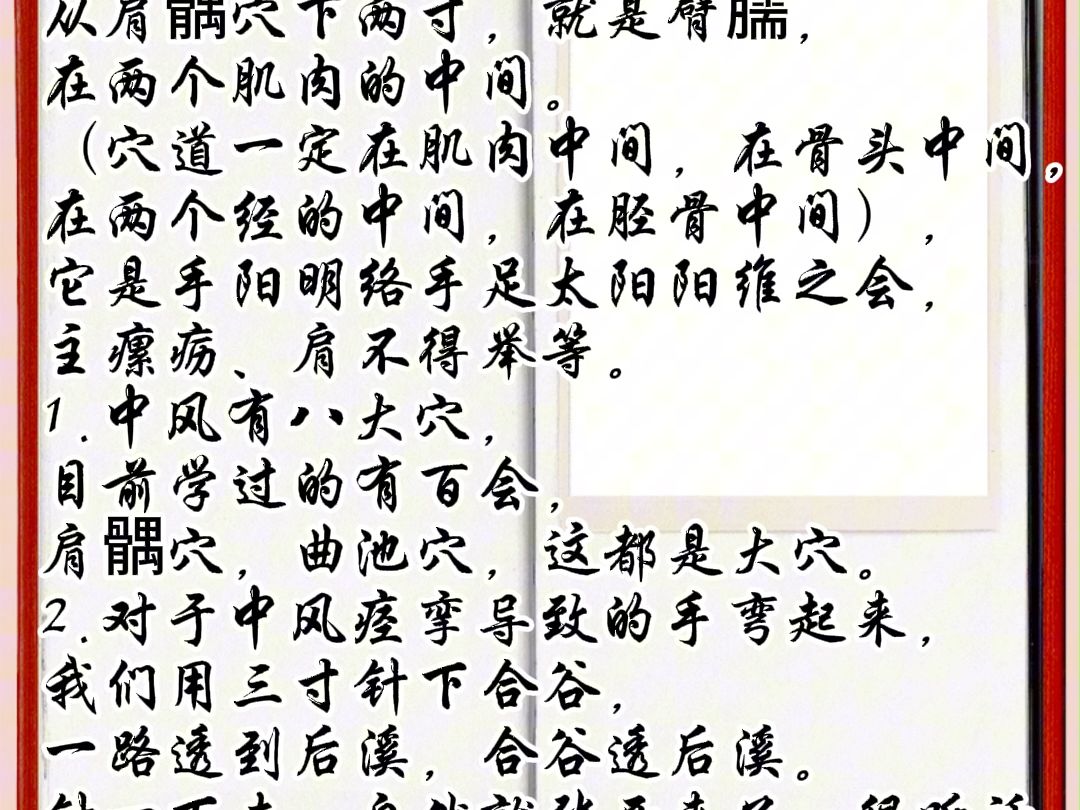 从肩髃穴下两寸，就是臂臑，
在两个肌肉的中间。
（穴道一定在肌肉中间，在骨头中间。
在两个经的中间，在胫骨中间），
它是手阳明络手足太阳阳维之会，
主瘰疬、肩不得举等。
1.中风有八大穴，
目前学过的有百会，
肩髃穴，曲池穴，这都是大穴。
2.对于中风痉挛导致的手弯起来，
我们用三寸针下合谷，
一路透到后溪，合谷透后溪。